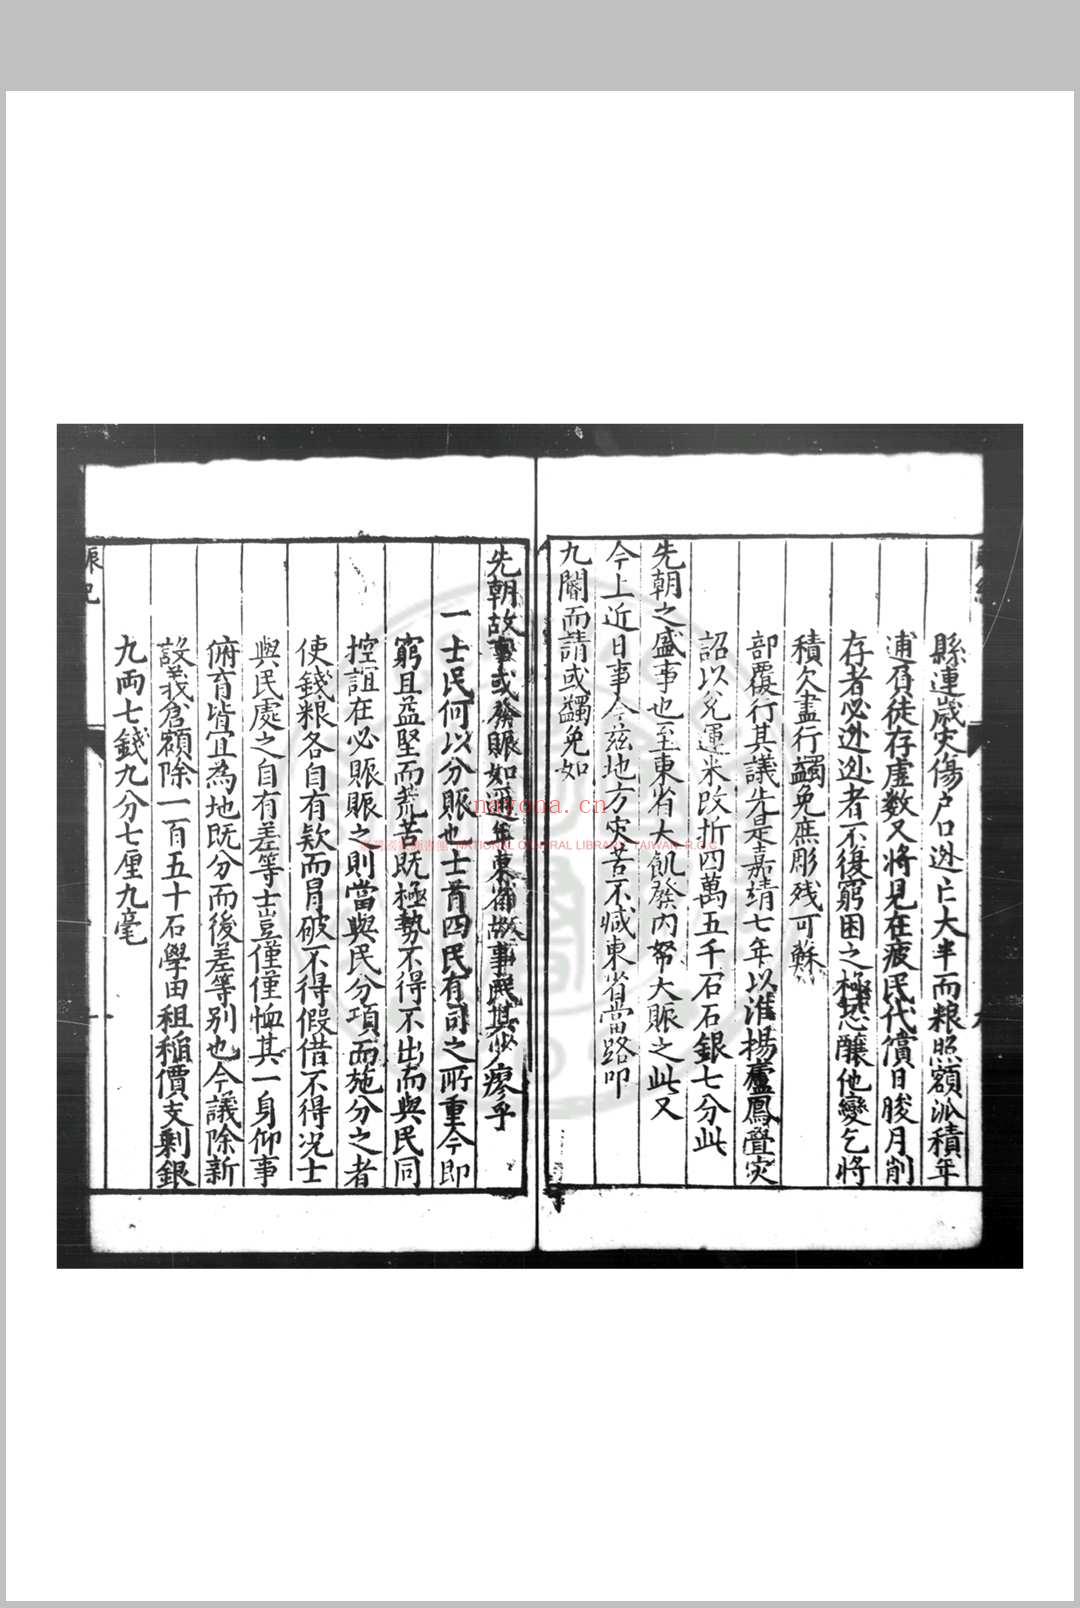 縣連歲灾傷戶口迯亡大半而粮照額派積年
逋負徒存虛數又將見在疲民代償日朘月削
存者必迯迯者不復窮困之極恐釀他變乞將
積欠盡行蠲免庶彫殘可蘇
部覆行其議先是嘉靖七年以淮揚廬鳳疊灾
詔以兌運米改折四萬五千石石銀七分此
先朝之盛事也至東省大飢發內帑大賑之此又
今上近日事今茲地方灾苦不減東省當路叩
九閽而請或蠲免如
先朝故事或發賑如近年東省故事民其少瘳乎
一士民何以分賑也士首四民有司之所重今即
窮且益堅而荒苦既極勢不得不出而與民同
控誼在必賑賑之則當與民分項而施分之者
使錢粮各自有欵而冒破不得假借不得况士
與民處之自有差等士豈僅僅恤其一身仰事
俯育皆宜為地既分而後差等別也今議除新
設義倉額除一百五十石學田租稲價支剩銀
九両七錢九分七厘九毫
賑紀
nayona.cn
NATIONAL CENTRAL LIBRARY, TAIWAN R.O.C